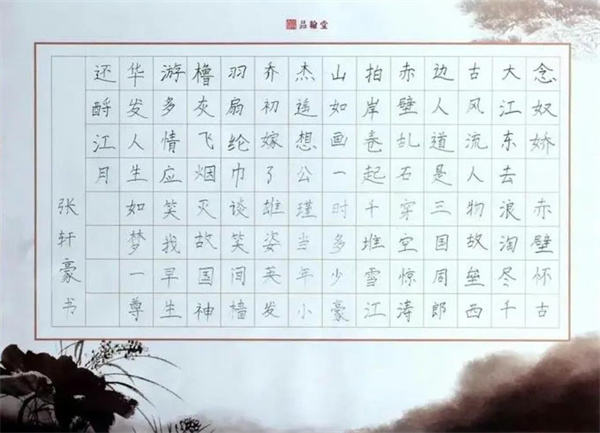 品翰堂
念奴娇 赤壁怀古
大江东去浪淘尽千
古风流人物故垒西
边人道是三国周郎
赤壁乱石穿空惊涛
拍岸卷起千堆雪江
山如画一时多少豪
杰遥想公瑾当年小
乔初嫁了雄姿英发
羽扇纶巾谈笑间樯
橹灰飞烟灭故国神
游多情应笑我早生
华发人生如梦一尊
还酹江月
张轩豪书